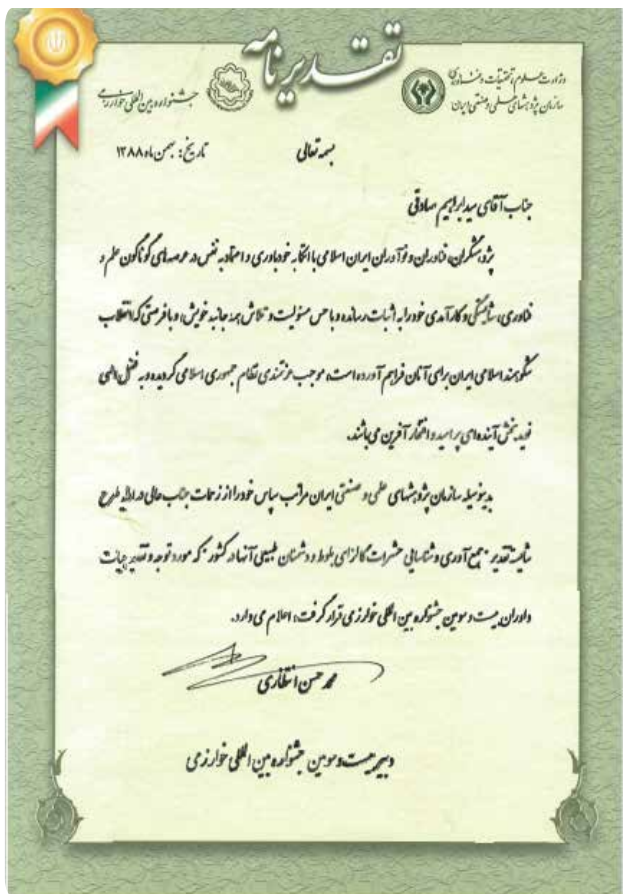 تقدیر نامه
وزارت علوم، تحقیقات و فناوری
سازمان پژوهشهای علمی و صنعتی ایران
جشنواره بین المللی خوارزمی
بسمه تعالی
تاریخ: بهمن ماه ۱۳۸۸
جناب آقای سید ابراهیم صادقی
پژوهشگران، فناوران و نوآوران ایران اسلامی با اتکا به خودباوری و اعتماد به نفس در عرصه‌های گوناگون علم و
فناوری، شایستگی و کارآمدی خود را به اثبات رسانده و با حس مسئولیت و تلاش همه جانبه خویش، و با فرصتی که انقلاب
شکوهمند اسلامی ایران برای آنان فراهم آورده است، موجب عزتمندی نظام جمهوری اسلامی گردیده و به فضل الهی
نوید بخش آینده‌ای پر امید و افتخار آفرین می‌باشند.
بدینوسیله سازمان پژوهشهای علمی و صنعتی ایران مراتب سپاس خود را از زحمات جناب عالی در ارائه طرح
شایسته تقدیر "جمع آوری و شناسایی حشرات گالزای بلوط و دشمنان طبیعی آنها در کشور" که مورد توجه و تقدیر هیات
داوران بیست و سومین جشنواره بین المللی خوارزمی قرار گرفت، اعلام می دارد.
محمد حسن انتظاری
دبیر بیست و سومین جشنواره بین المللی خوارزمی